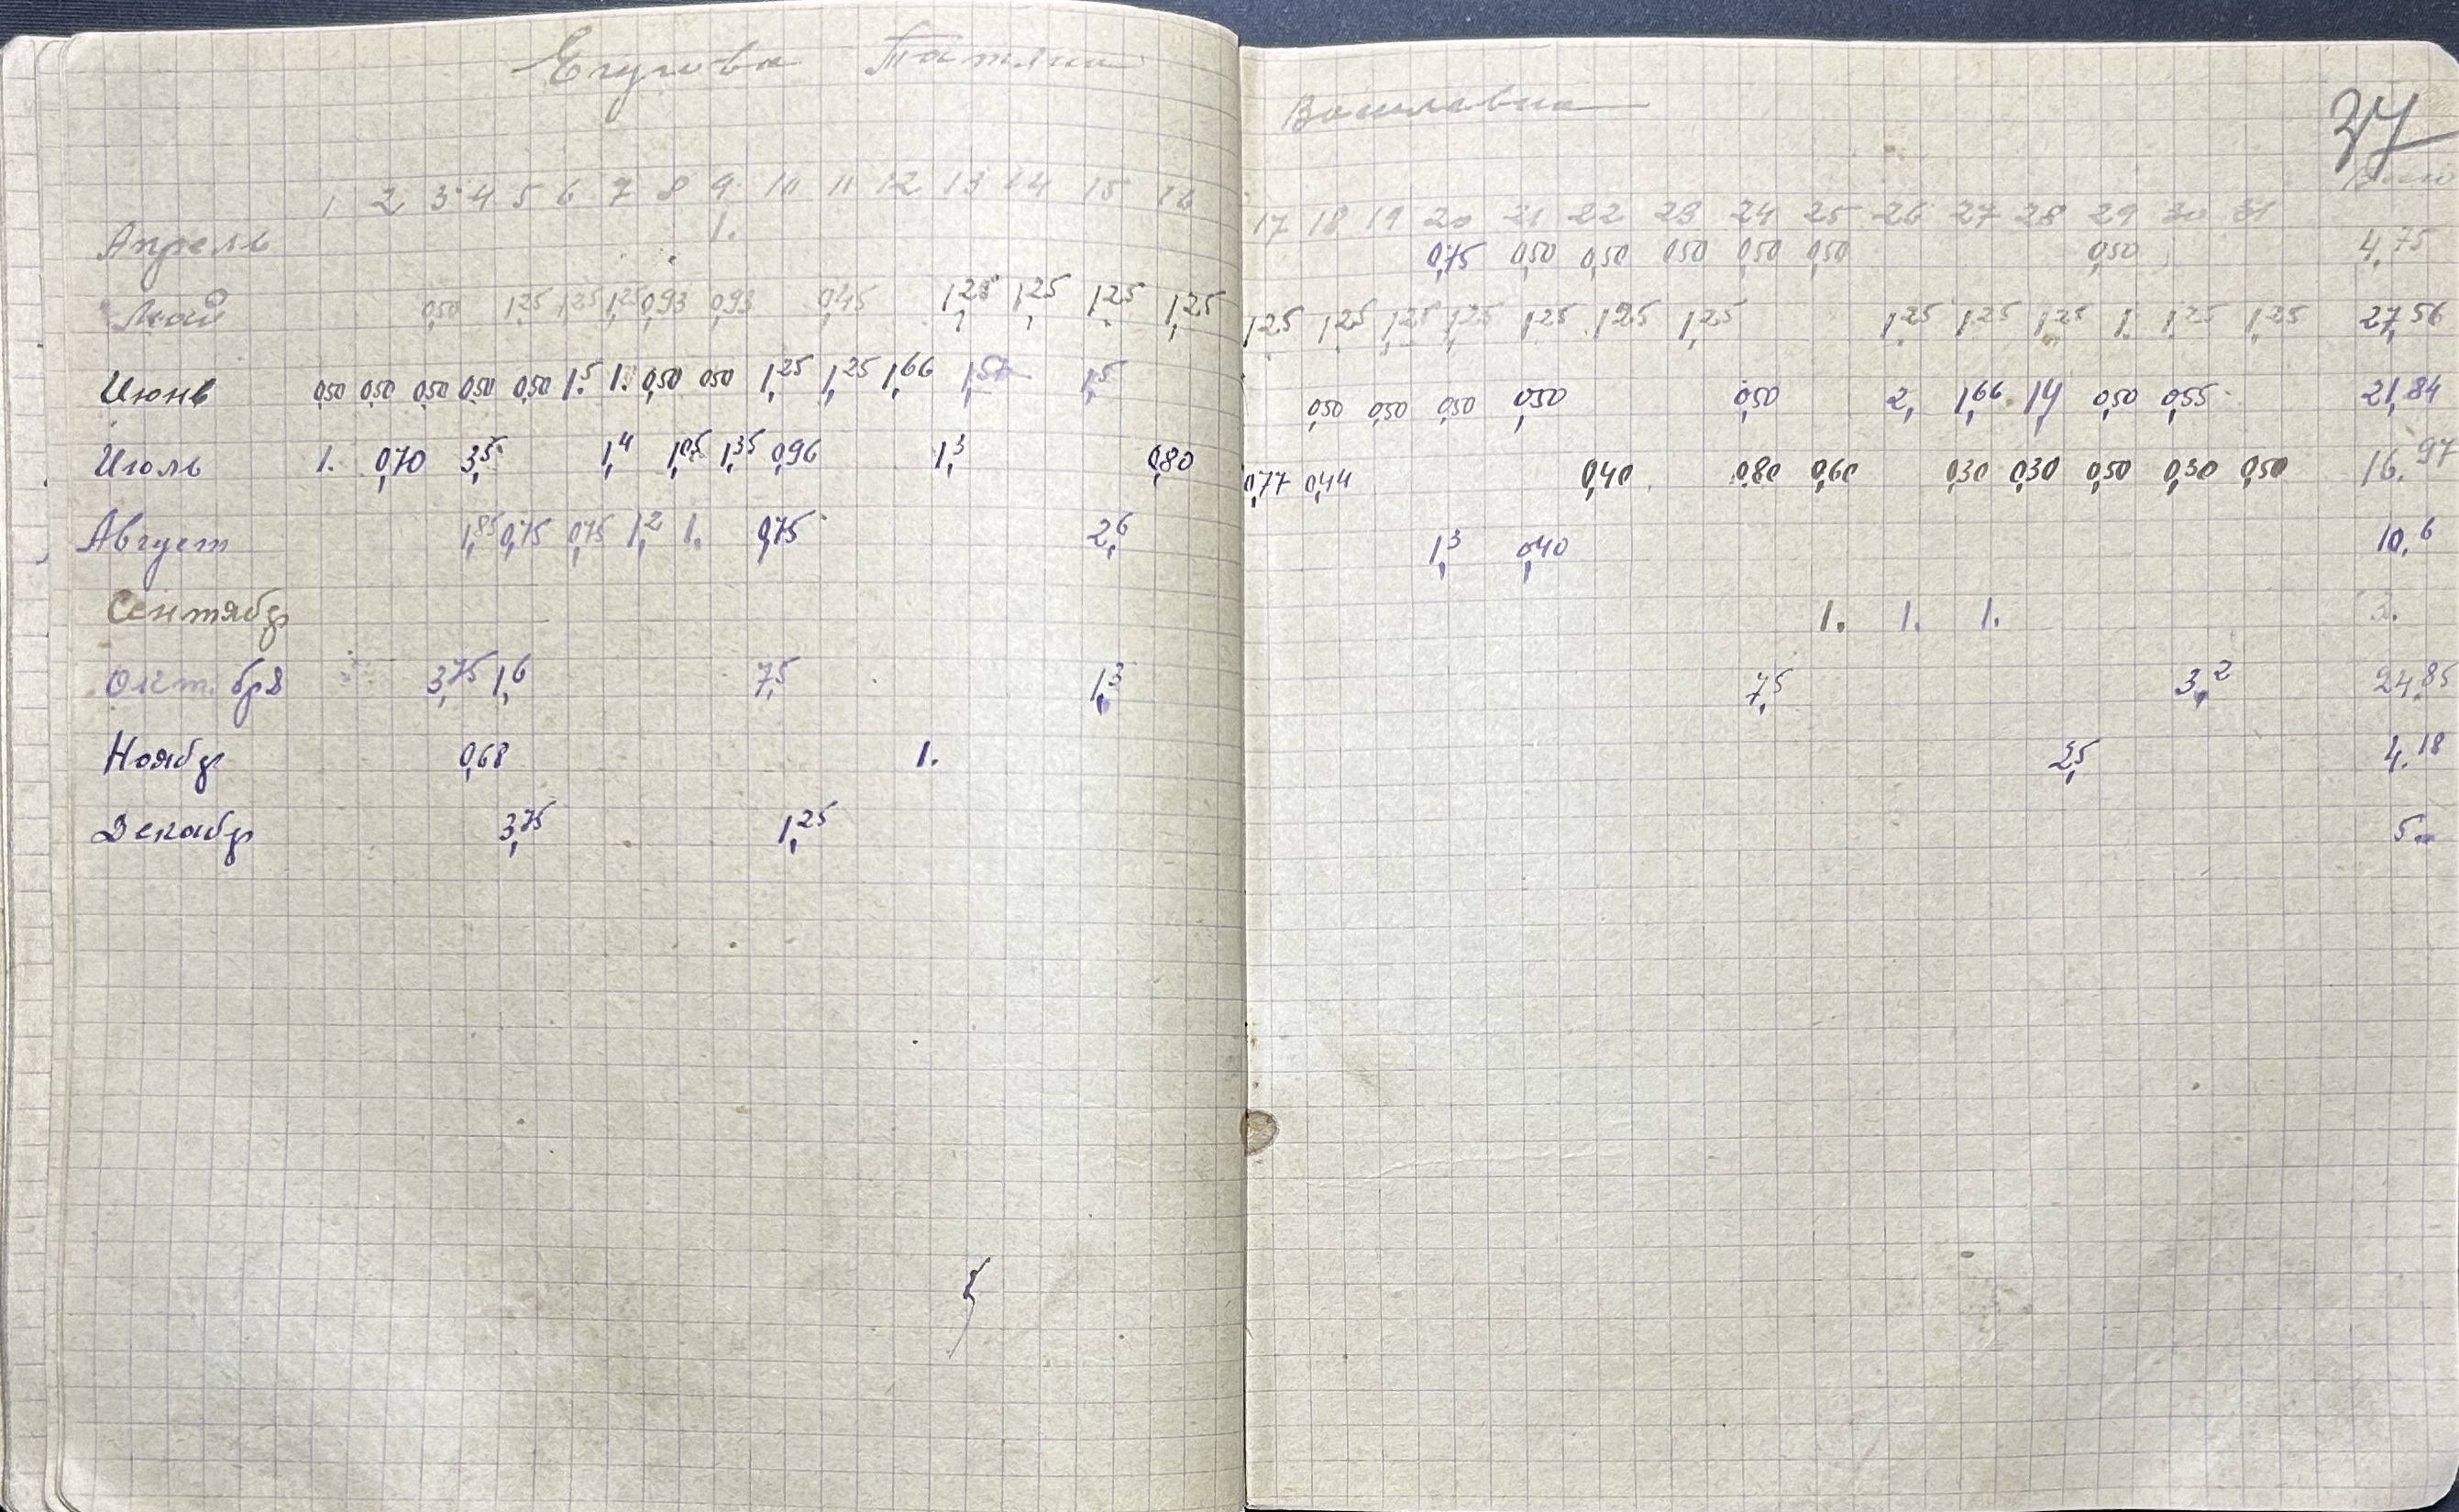 Егугова Татьяна Васильевна
37
1 2 3 4 5 6 7 8 9 10 11 12 13 14 15 16 17 18 19 20 21 22 23 24 25 26 27 28 29 30 31
Апрель 1. 0,75 0,50 0,50 0,50 0,50 0,50 0,50 4,75
Май 0,50 1,25 1,25 1,25 0,93 0,93 0,45 1,25 1,25 1,25 1,25 1,25 1,25 1,25 1,25 1,25 1,25 1,25 1,25 1,25 1,25 1. 1,25 1,25 27,56
Июнь 0,50 0,50 0,50 0,50 0,50 1,5 1. 0,50 0,50 1,25 1,25 1,66 1,5 0,50 0,50 0,50 0,50 0,50 2, 1,66 0,50 0,55 21,84
Июль 1. 0,70 3,5 1,4 1,05 1,35 0,96 1,3 0,80 0,77 0,44 0,40 0,80 0,60 0,30 0,30 0,50 0,30 0,50 16.97
Август 1,85 0,75 0,75 1,2 1. 0,75 2,6 1,3 0,40 10,6
Сентябр 1. 1. 1. 3.
Октябрь 3,75 1,6 7,5 1,3 7,5 3,2 24,85
Ноябр 0,68 1. 2,5 4.18
Декабр 3,75 1,25 5